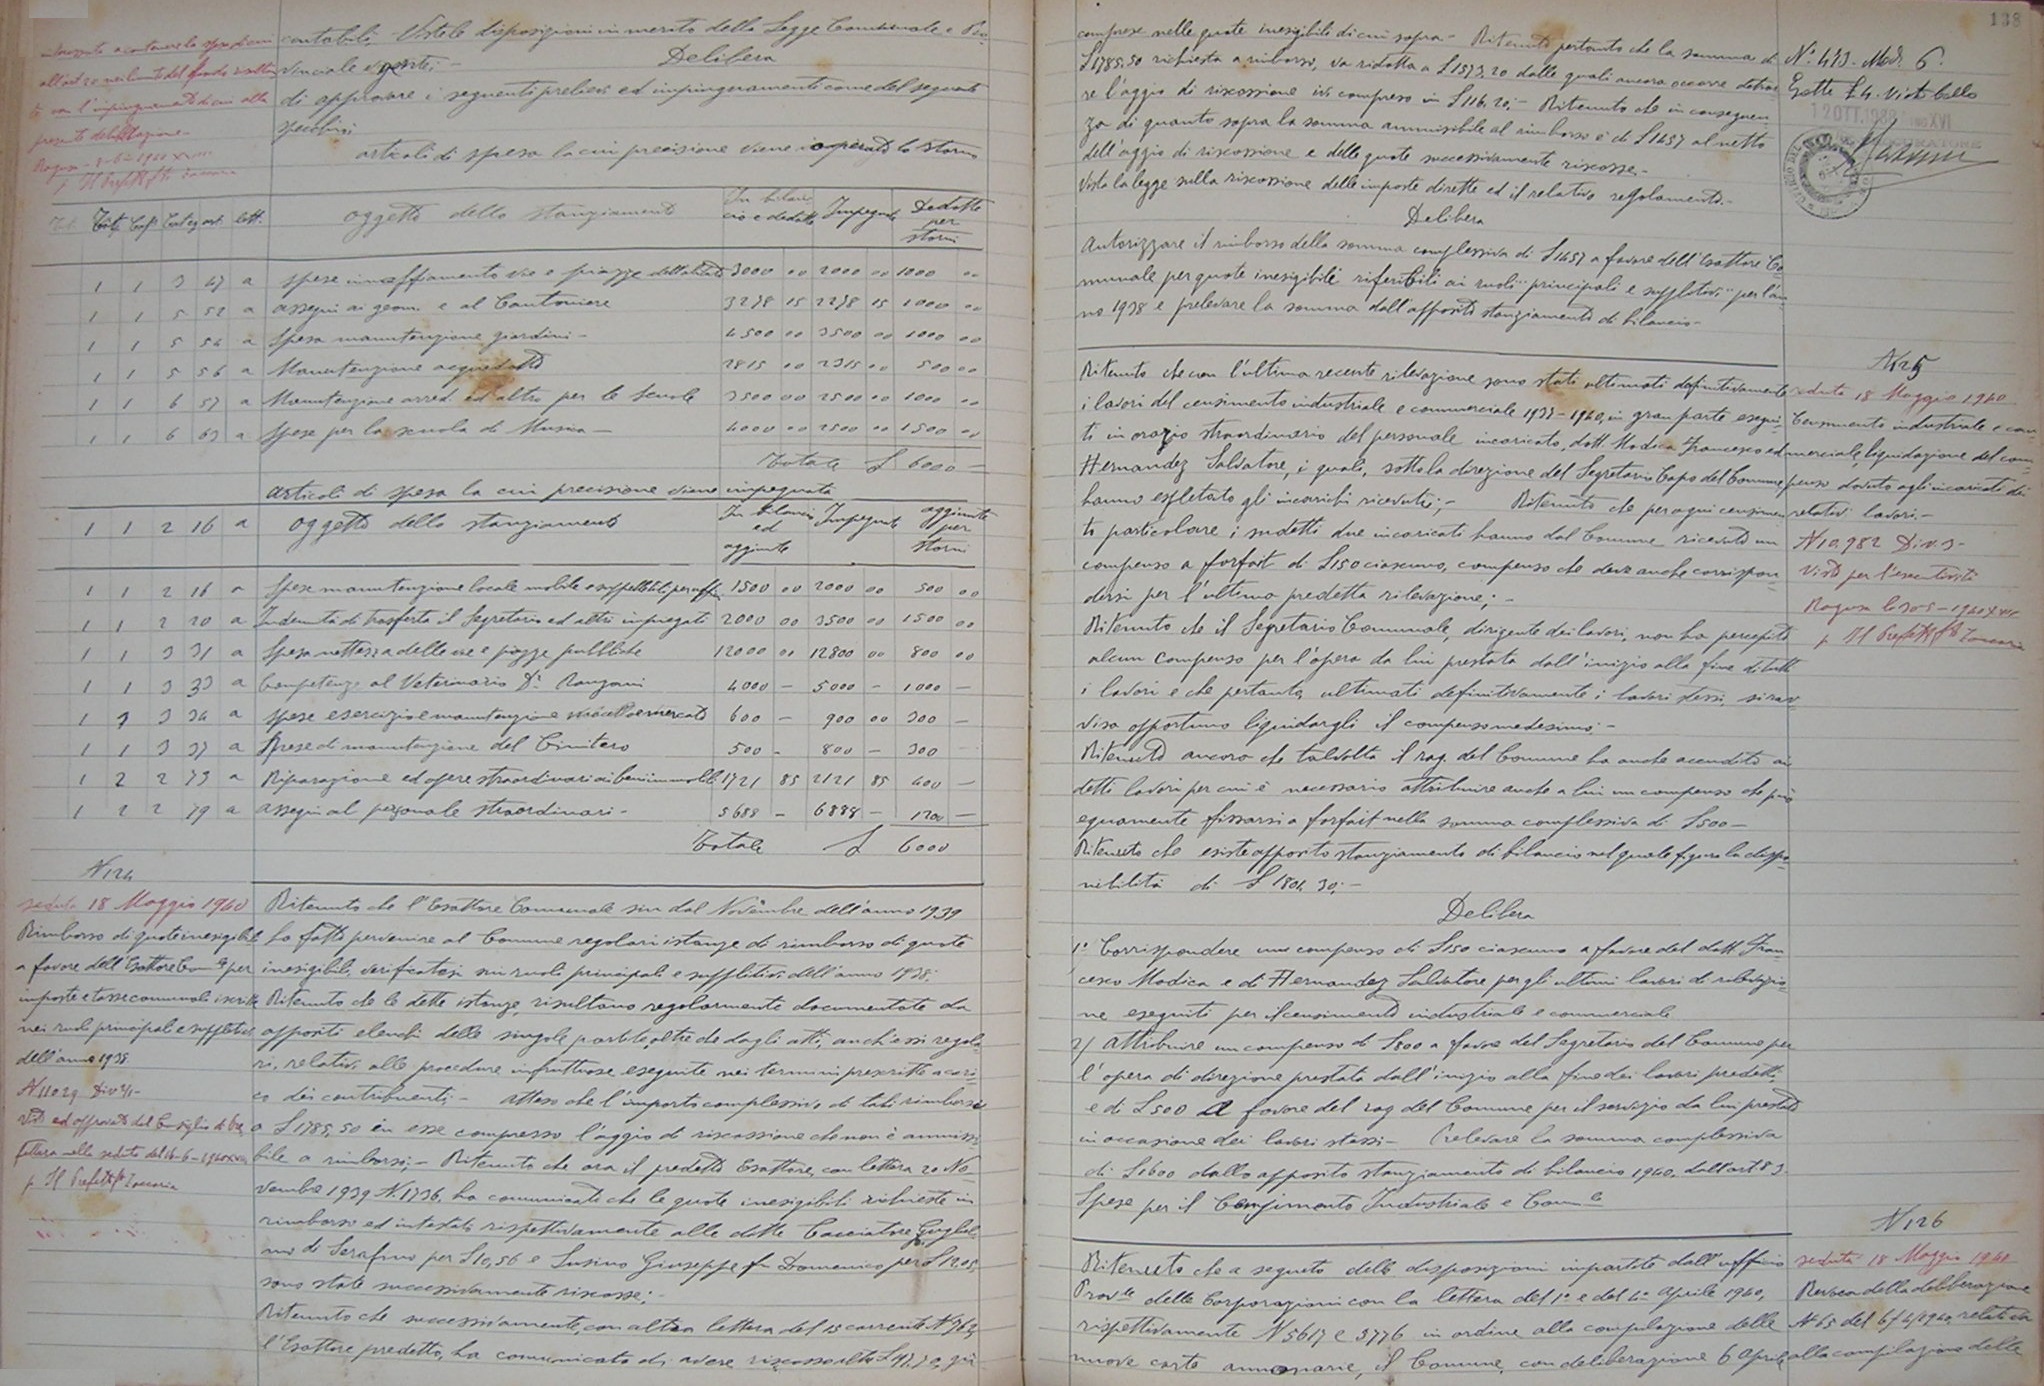 contabili; Viste le disposizioni in merito della Legge Comunale e Pro-
vinciale vigente; -
Delibera
di approvare i seguenti prelievi ed impinguamenti come del seguente
specchio:
articoli di spesa la cui precisione viene operato lo storno
Tit. Cap. Categ. art. lett. oggetto dello stanziamento In bilancio e dedotto Impegnato Dedotto per storni
1 1 3 47 a spese innaffiamento vie e piazze dell'abitato 3000 00 2000 00 1000 00
1 1 5 52 a assegni ai geom. e al Cantoniere 3278 15 2278 15 1000 00
1 1 5 54 a spesa manutenzione giardini - 4500 00 3500 00 1000 00
1 1 5 56 a Manutenzione acquedotto 2815 00 2315 00 500 00
1 1 6 57 a Manutenzione arred. ed altro per le Scuole 3500 00 2500 00 1000 00
1 1 6 63 a Spese per la scuola di Musica - 4000 00 2500 00 1500 00
Totale £ 6000 -
articoli di spesa la cui precisione viene impegnata
1 1 2 16 a oggetto dello stanziamento In bilancio ed aggiunto Impegnato aggiunte per storni
1 1 2 16 a Spese manutenzione locale mobile e suppellettili per uffici 1500 00 2000 00 500 00
1 1 2 20 a Indennità di trasferta il Segretario ed altri impiegati 2000 00 3500 00 1500 00
1 1 3 31 a Spesa nettezza delle vie e piazze pubbliche 12000 00 12800 00 800 00
1 1 3 33 a Competenze al Veterinario Dr. 4000 - 5000 - 1000 -
1 1 3 34 a Spese esercizio e manutenzione macello e mercato 600 - 900 00 300 -
1 1 3 37 a Spese di manutenzione del Cimitero 500 - 800 - 300
1 2 2 73 a Riparazione ed opere straordinari ai beni immobili 1721 85 2121 85 400 -
1 2 2 79 a assegni al personale straordinari - 5688 - 6888 - 1200 -
Totale £ 6000
N 124
seduta 18 Maggio 1940
Rimborso di quote inesigibili
a favore dell'Esattore Com.le per
imposte e tasse comunali iscritte
nei ruoli principali e suppletivi
dell'anno 1938
N 11029 Div
Visto ed approvato dal Consiglio di Pre-
fettura nella seduta del 16-6-1940 XVIII
p. Il Prefetto f.to Zaccaria
Ritenuto che l'Esattore Comunale sin dal Novembre dell'anno 1939
ha fatto pervenire al Comune regolari istanze di rimborso di quote
inesigibili, verificatesi sui ruoli principali e suppletivi dell'anno 1938;
Ritenuto che le dette istanze, risultano regolarmente documentate da
appositi elenchi delle singole partite, oltre che dagli atti, anch'essi regola-
ri, relativi alle procedure infruttuose eseguite nei termini prescritti a cari-
co dei contribuenti; - Atteso che l'importo complessivo di tali rimborsi è
a £ 1785,50 in esse compreso l'aggio di riscossione che non è ammissi-
bile a rimborsi; - Ritenuto che ora il predetto Esattore, con lettera 20 No-
vembre 1939 N. 1736, ha comunicato che le quote inesigibili richieste in
rimborso ed intestate rispettivamente alle ditte Cacciatore Gugliel-
mo di Serafino per £ 10,56 e Susino Giuseppe fu Domenico per £ 12,05
sono state successivamente riscosse; -
Ritenuto che successivamente, con altra lettera del 15 corrente N 762,
l'Esattore predetto, ha comunicato di avere riscosso altre £ 47,70, già
138
comprese nelle quote inesigibili di cui sopra - Ritenuto pertanto che la somma di
£ 1785,50 richiesta a rimborso, va ridotta a £ 1573,20 dalle quali ancora occorre detrar-
re l'aggio di riscossione ivi compreso in £ 116,20; - Ritenuto che in conseguen-
za di quanto sopra la somma ammissibile al rimborso è di £ 1457 al netto
dell'aggio di riscossione e delle quote successivamente riscosse; -
Vista la legge sulla riscossione delle imposte dirette ed il relativo regolamento. -
Delibera
Autorizzare il rimborso della somma complessiva di £ 1457 a favore dell'Esattore Co-
munale per quote inesigibili riferibili ai ruoli principali e suppletivi per l'an-
no 1938 e prelevare la somma dall'apposito stanziamento di bilancio -
N. 433 - Mod. 6.
12 OTT. 1938 XVI
N 125
seduta 18 Maggio 1940
Censimento industriale e com-
merciale, liquidazione del com-
penso dovuto agli incaricati dei
relativi lavori. -
N 10,982 Div. 3 -
Visto per l'esecutività
Ragusa li 30-5-1940 XVIII
p. Il Prefetto f.to Zaccaria
Ritenuto che con l'ultima recente rilevazione sono stati ultimati definitivamente
i lavori del censimento industriale e commerciale 1937-1940, in gran parte esegui-
ti in orario straordinario del personale incaricato, dott. Modica Francesco ed
Hernandez Salvatore, i quali, sotto la direzione del Segretario Capo del Comune,
hanno espletato gli incarichi ricevuti; - Ritenuto che per ogni censimen-
to particolare i sudetti due incaricati hanno dal Comune ricevuto un
compenso a forfait di £ 150 ciascuno, compenso che deve anche corrispon-
dersi per l'ultima predetta rilevazione; -
Ritenuto che il Segretario Comunale, dirigente dei lavori, non ha percepito
alcun compenso per l'opera da lui prestata dall'inizio alla fine di tutti
i lavori e che pertanto, ultimati definitivamente i lavori stessi, si rav-
visa opportuno liquidargli il compenso medesimo; -
Ritenuto ancora che talvolta il rag. del Comune ha anche accudito ai
detti lavori per cui è necessario attribuire anche a lui un compenso che può
equamente fissarsi a forfait nella somma complessiva di £ 500 -
Ritenuto che esiste apposito stanziamento di bilancio nel quale figura la dispo-
nibilità di £ 1804,30; -
Delibera
1° Corrispondere un compenso di £ 150 ciascuno a favore del dott. Fran-
cesco Modica e di Hernandez Salvatore per gli ultimi lavori di rilevazio-
ne eseguiti per il censimento industriale e commerciale
2) attribuire un compenso di £ 800 a favore del Segretario del Comune per
l'opera di direzione prestata dall'inizio alla fine dei lavori predetti;
e di £ 500 a favore del rag. del Comune per il servizio da lui prestato
in occasione dei lavori stessi - Prelevare la somma complessiva
di £ 1600 dallo apposito stanziamento di bilancio 1940, dall'art. 83
Spese per il Censimento Industriale e Comm.le
N 126
seduta 18 Maggio 1940
Revoca della deliberazione
N 65 del 6/4/1940, relativa
alla compilazione delle
Ritenuto che a seguito delle disposizioni impartite dall'ufficio
Prov.le delle Corporazioni con la lettera del 1° e del 4 aprile 1940,
rispettivamente N 5617 e 3776 in ordine alla compilazione delle
nuove carte annonarie, il Comune, con deliberazione 6 aprile